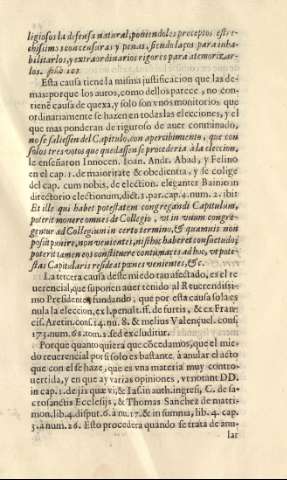 ligiosos la defensa natural, poniendoles preceptos estre-
chissimos con censuras y penas, siendo lazos para inha-
bilitarlos, y extraordinarios rigores para atemorizar-
los.
Esta causa tiene la misma justificacion que las de-
mas: porque los autos, como dellos parece, no con-
tienē causa de quexa, y solo son vnos monitorios que
ordinariamente se hazen en todas las elecciones, y el
que mas ponderan de riguroso de auer comminado,
no se saliessen del Capitulo, con apercibimento, que con
solos tres votos que quedassen se procederia à la eleccion,
le enseñaron Innocen. Ioan. Andr. Abad, y Felino
en el cap. 1. de maioritate & obedientia, y de colige
del cap. cum nobis, de election. eleganter Bainio in
directorio electionum, dict. 1. par. cap. 4. num. 2. ibi:
Et ille qui habet potestatem congregandi Capitulum,
poterit monere omnes de Collegio, vt in vnum congre-
gentur ad Collegium in certo termino, & quamuis non
possit punire, non venientes, nisi hoc haberet consuetudo;
poterit tamen eos constituere contumaces ad hoc, vt pote-
stas Capitularis resideat penes venientes, &c.
La tercera causa deste miedo era afestado, es el re
uerencial, que suponen auer tenido al Reuerendissi-
mo Presidente, fundando, que por esta causa sola es
nula la eleccion, ex l. penult. ff. de furtis, & ex Fran-
cis. Aretin. cons. 14. nu. 8. & melius Valençuel. cons.
173. num. 68. tom. 2. sed excluditur.
Porque quanto quiera que cōcedamos, que el mie-
do reuerencial por si solo es bastante, à anular el acto
que con el se haze, que es vna materia muy contro-
uertida, y en que ay varias opiniones, vt notant DD.
in cap. 1. de iis quæ vi, & Ias. in auth. ingressi, C. de sa-
crosanctis Ecclesijs, & Thomas Sanchez de matri-
mon. lib. 4. disput. 6. à nu. 17. & in summa, lib. 4. cap.
3. à num. 26. Esto procedera quando se trata de anu-
lar